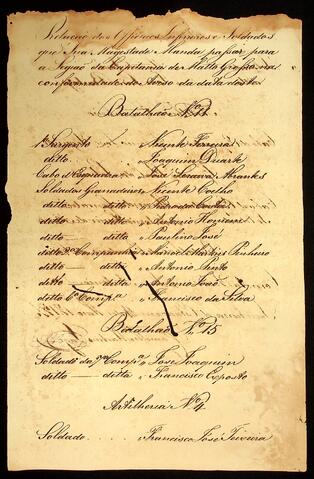 Relação dos Officiaes Inferiores e Soldados
que Sua Magestade Manda passar para
a Legião da Capitania de Matto Grosso na
conformidade do Avizo da data deste
Batalhão N.º 11
1.º Sargento Vicente Ferreira
ditto Joaquim Duarte
Cabo d'Esquadra José Abrantes
Soldados Granadeiros Vicente Coelho
ditto ditto
ditto ditto Antonio Henriques
ditto ditto Paulino José
ditto Companhia Martins Pinheiro
ditto ditto Antonio Pinto
ditto ditto Antonio José
ditto 6.ª Comp.ª Francisco da Silva
Batalhão N.º 15
Soldado da Comp.ª José Joaquim
ditto ditta Francisco Exposto
Artilheria N.º 4
Soldado Francisco José Teixeira